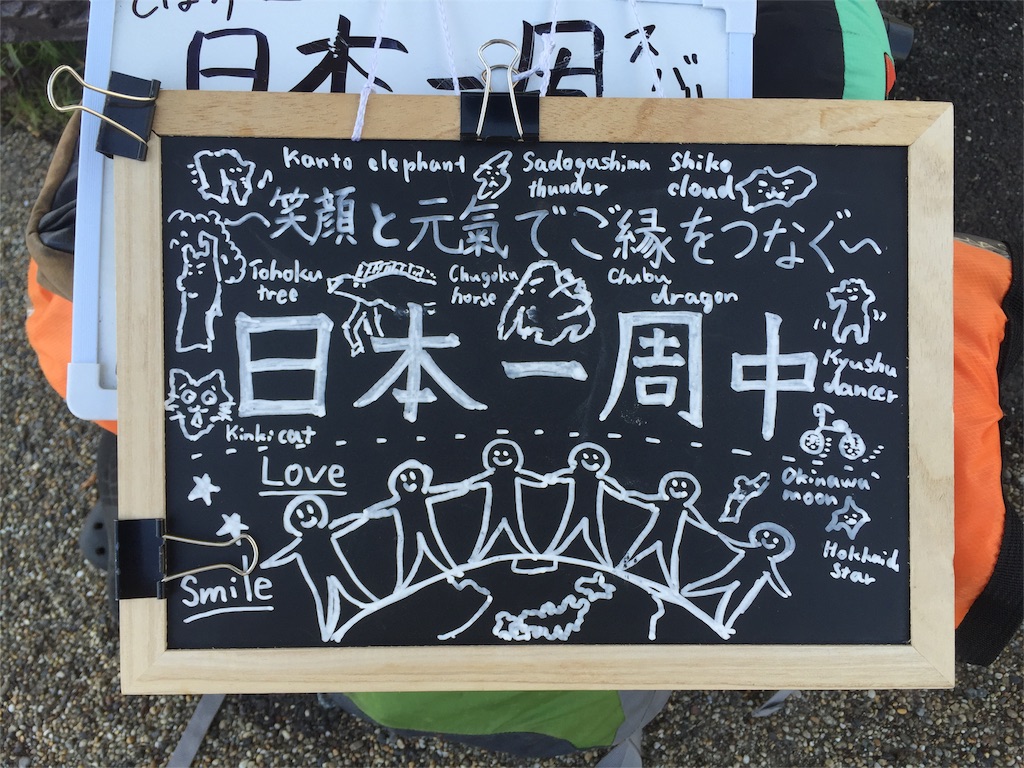 日本一周
Kanto elephant
Sadogashima thunder
Shiko cloud
〜笑顔と元氣でご縁をつなぐ〜
Tohoku tree
Chugoku horse
Chubu dragon
日本一周中
Kyushu dancer
Kinki cat
Love
Okinawa moon
Hokkaid star
Smile